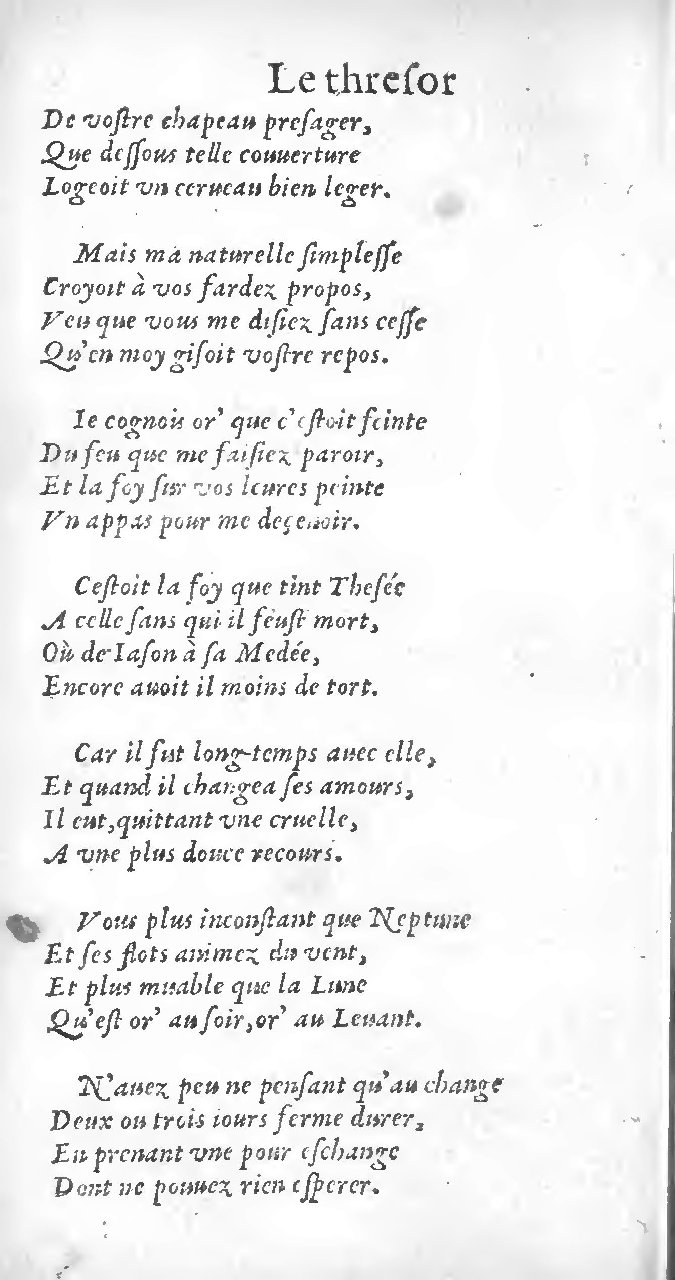 Le threſor
De voſtre chapeau preſager,
Que deſſous telle couuerture
Logeoit vn cerueau bien leger.
Mais ma naturelle ſimpleſſe
Croyoit à vos fardez propos,
Veu que vous me diſiez ſans ceſſe
Qu'en moy giſoit voſtre repos.
Ie cognois or' que c'eſtoit feinte
Du feu que me faiſiez paroir,
Et la foy ſur vos leures peinte
Vn appas pour me deçeuoir.
Ceſtoit la foy que tint Theſée
A celle ſans qui il feuſt mort,
Où de Iaſon à ſa Medée,
Encore auoit il moins de tort.
Car il fut long-temps auec elle,
Et quand il changea ſes amours,
Il eut, quittant vne cruelle,
A vne plus douce recours.
Vous plus inconſtant que Neptune
Et ſes flots animez du vent,
Et plus muable que la Lune
Qu'eſt or' au ſoir, or' au Leuant.
N'auez peu ne penſant qu'au change
Deux ou trois iours ferme durer,
En prenant vne pour eſchange
Dont ne pouuez rien eſperer.